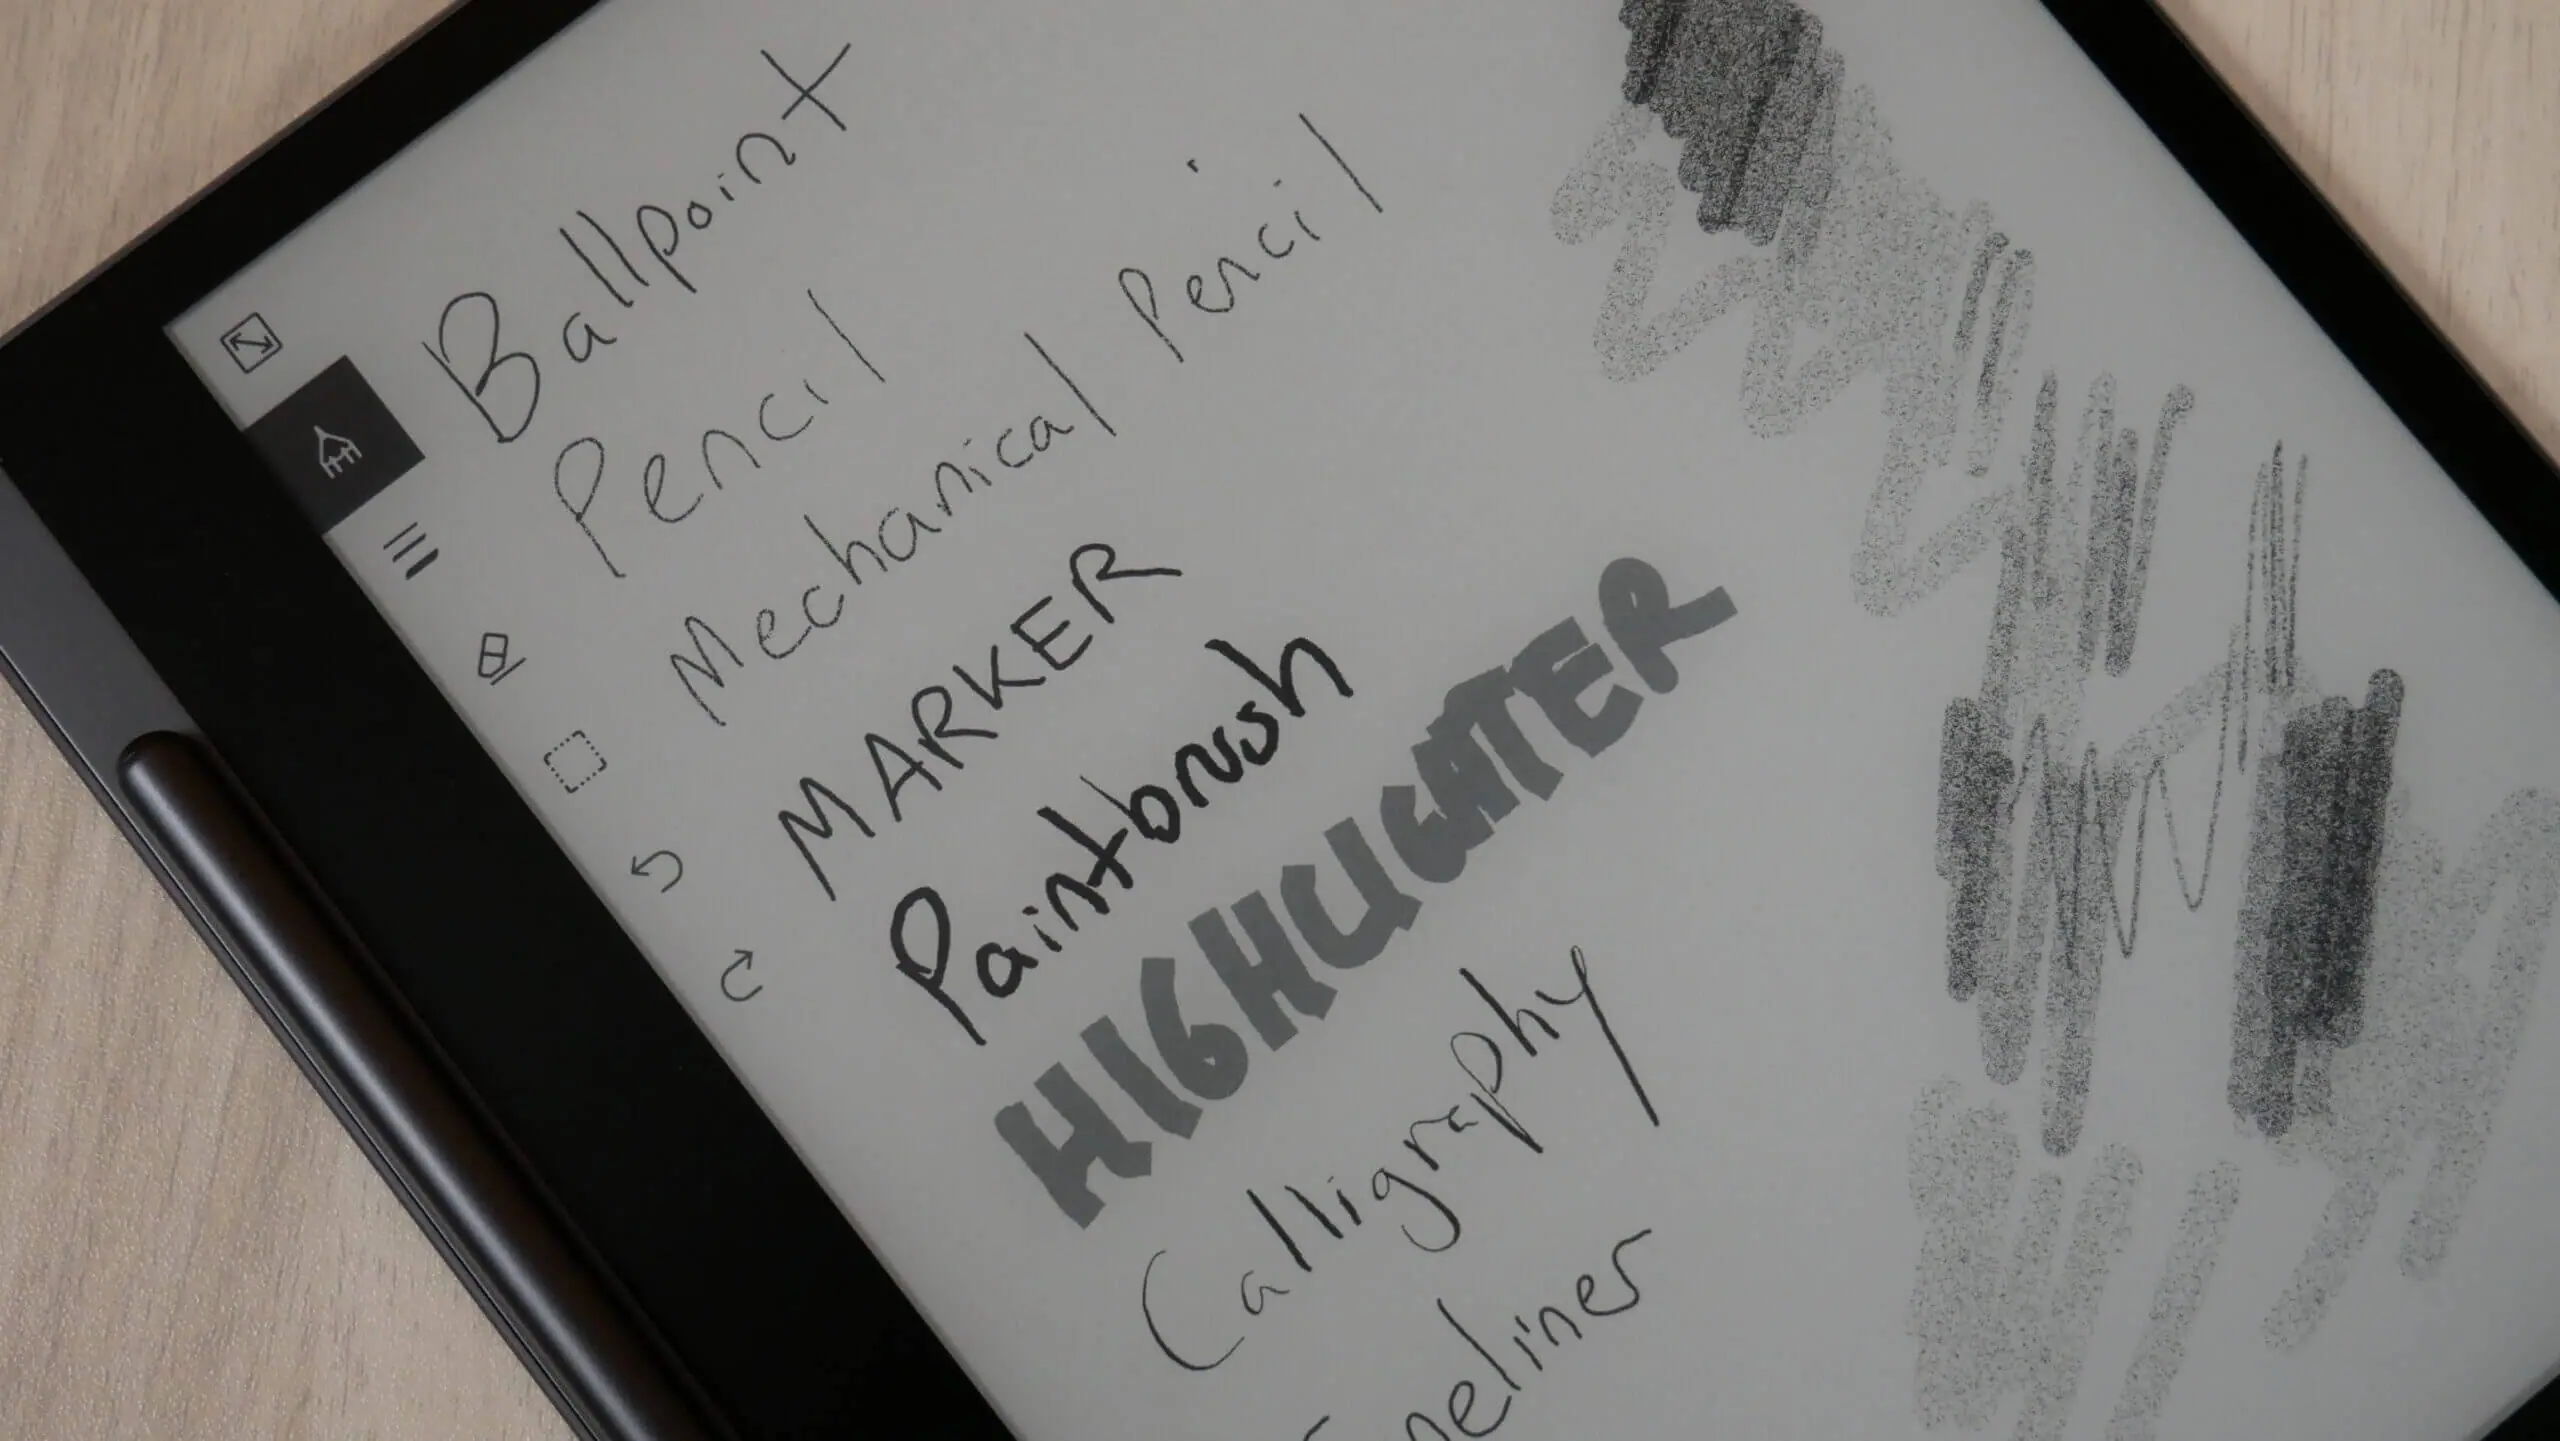 Ballpoint
Pencil
Mechanical Pencil
MARKER
Paintbrush
HIGHLIGHTER
Calligraphy
Fineliner